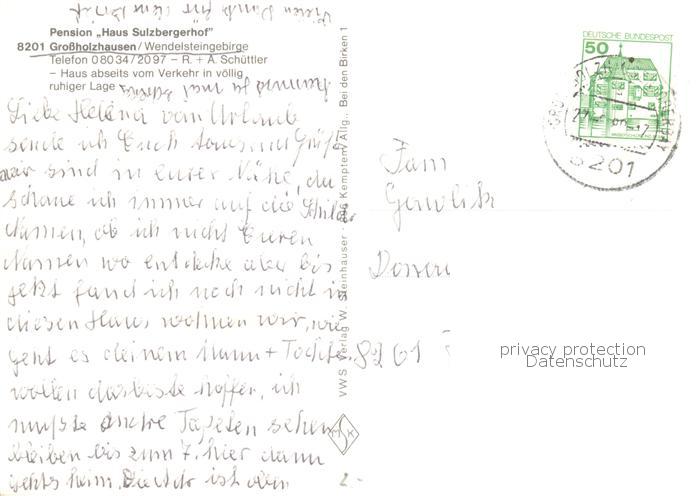 Pension „Haus Sulzbergerhof"
8201 Großholzhausen/Wendelsteingebirge
Telefon 08034/2097 – R. + A. Schüttler
– Haus abseits vom Verkehr in völlig
ruhiger Lage
Liebe Helena vom Urlaub
sende ich Euch tausend Grüße
wir sind in eurer Nähe, da
schaue ich immer auf die Schilder
Namen, ob ich nicht Euren
Namen wo entdecke aber bis
jetzt fand ich noch nicht in
diesen Haus wohnen wir, wie
geht es deinem Mann + Tochter
wollen das beste hoffen, ich
mußte andre Tapeten sehen
bleiben bis zum 7. hier dann
gehts heim. Die Adr ist oben
Vielen Dank für dein Brief
VWS Verlag W. Steinhauser · 896 Kempten/Allg., Bei den Birken 1
MSK
DEUTSCHE BUNDESPOST
50
8201
Fam
Gawlik
8201
privacy protection
Datenschutz
2.-